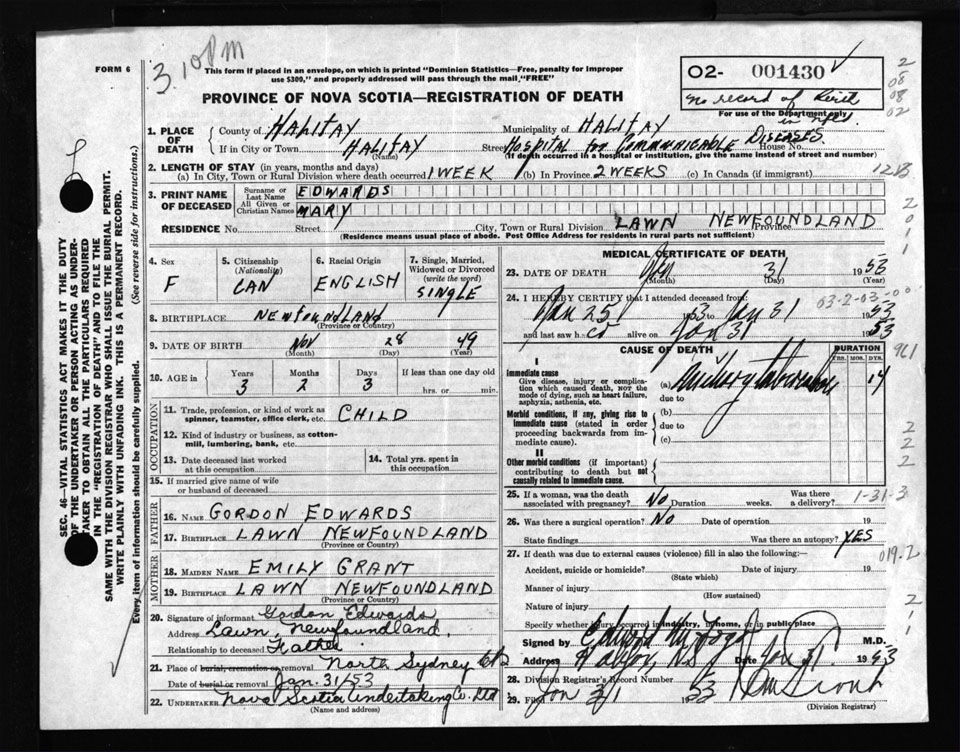 3.10 PM
FORM 6
This form if placed in an envelope, on which is printed "Dominion Statistics—Free, penalty for improper
use $300," and properly addressed will pass through the mail, "FREE"
O2- 001430
no record of Birth
in Nfld.
For use of the Department only
PROVINCE OF NOVA SCOTIA—REGISTRATION OF DEATH
2
08
08
02
1. PLACE OF DEATH County of HALIFAX Municipality of HALIFAX
If in City or Town HALIFAX (Name) Street HOSPITAL for COMMUNICABLE DISEASES. House No.
(If death occurred in a hospital or institution, give the name instead of street and number)
2. LENGTH OF STAY (in years, months and days)
(a) In City, Town or Rural Division where death occurred 1 WEEK (b) In Province 2 WEEKS (c) In Canada (if immigrant)
3. PRINT NAME OF DECEASED Surname or Last Name EDWARDS
All Given or Christian Names MARY
RESIDENCE No. Street City, Town or Rural Division LAWN NEWFOUNDLAND Province
(Residence means usual place of abode. Post Office Address for residents in rural parts not sufficient)
2
0
1
1
4. Sex F
5. Citizenship (Nationality) CAN
6. Racial Origin ENGLISH
7. Single, Married, Widowed or Divorced (write the word) SINGLE
8. BIRTHPLACE NEWFOUNDLAND
(Province or Country)
9. DATE OF BIRTH NOV 28 49
(Month) (Day) (Year)
10. AGE in Years 3 Months 2 Days 3 If less than one day old
hrs. or min.
OCCUPATION
11. Trade, profession, or kind of work as spinner, teamster, office clerk, etc. CHILD
12. Kind of industry or business, as cotton-mill, lumbering, bank, etc.
13. Date deceased last worked at this occupation
14. Total yrs. spent in this occupation
15. If married give name of wife or husband of deceased
FATHER
16. NAME GORDON EDWARDS
17. BIRTHPLACE LAWN NEWFOUNDLAND
(Province or Country)
MOTHER
18. MAIDEN NAME EMILY GRANT
19. BIRTHPLACE LAWN NEWFOUNDLAND
(Province or Country)
20. Signature of informant Gordon Edwards
Address Lawn, Newfoundland.
Relationship to deceased Father
21. Place of burial, cremation or removal North Sydney
Date of burial or removal Jan. 31/53
22. UNDERTAKER Nova Scotia Undertaking Co. Ltd
(Name and address)
MEDICAL CERTIFICATE OF DEATH
23. DATE OF DEATH Jan 31 1953
(Month) (Day) (Year)
24. I HEREBY CERTIFY that I attended deceased from:
Jan 25 1953 to Jan 31 1953
and last saw h alive on Jan 31 1953
03-2-03-00
CAUSE OF DEATH
DURATION
YRS. MOS. DYS.
I
Immediate cause
Give disease, injury or complication which caused death, NOT the mode of dying, such as heart failure, asphyxia, asthenia, etc.
(a) Miliary tuberculosis 14
due to
Morbid conditions, if any, giving rise to immediate cause (stated in order proceeding backwards from immediate cause).
(b)
due to
(c)
II
Other morbid conditions (if important) contributing to death but not causally related to immediate cause.
961
2
2
2
25. If a woman, was the death associated with pregnancy? No Duration weeks. Was there a delivery?
1-31-3
26. Was there a surgical operation? No Date of operation 19
State findings Was there an autopsy? YES
27. If death was due to external causes (violence) fill in also the following:—
019.2
Accident, suicide or homicide? Date of injury 19
(State which)
Manner of injury
(How sustained)
Nature of injury
Specify whether injury occurred in industry, in home, or in public place
Signed by Edward M.D.
Address Halifax, N.S. Date Jan 31 1953
28. Division Registrar's Record Number
29. Filed Jan 31 1953
(Division Registrar)
SEC. 46—VITAL STATISTICS ACT MAKES IT THE DUTY
OF THE UNDERTAKER OR PERSON ACTING AS UNDER-
TAKER TO OBTAIN ALL THE PARTICULARS REQUIRED
IN THE "REGISTRATION OF DEATH" AND TO FILE THE
SAME WITH THE DIVISION REGISTRAR WHO SHALL ISSUE THE BURIAL PERMIT.
WRITE PLAINLY WITH UNFADING INK. THIS IS A PERMANENT RECORD.
Every item of information should be carefully supplied. (See reverse side for instructions.)